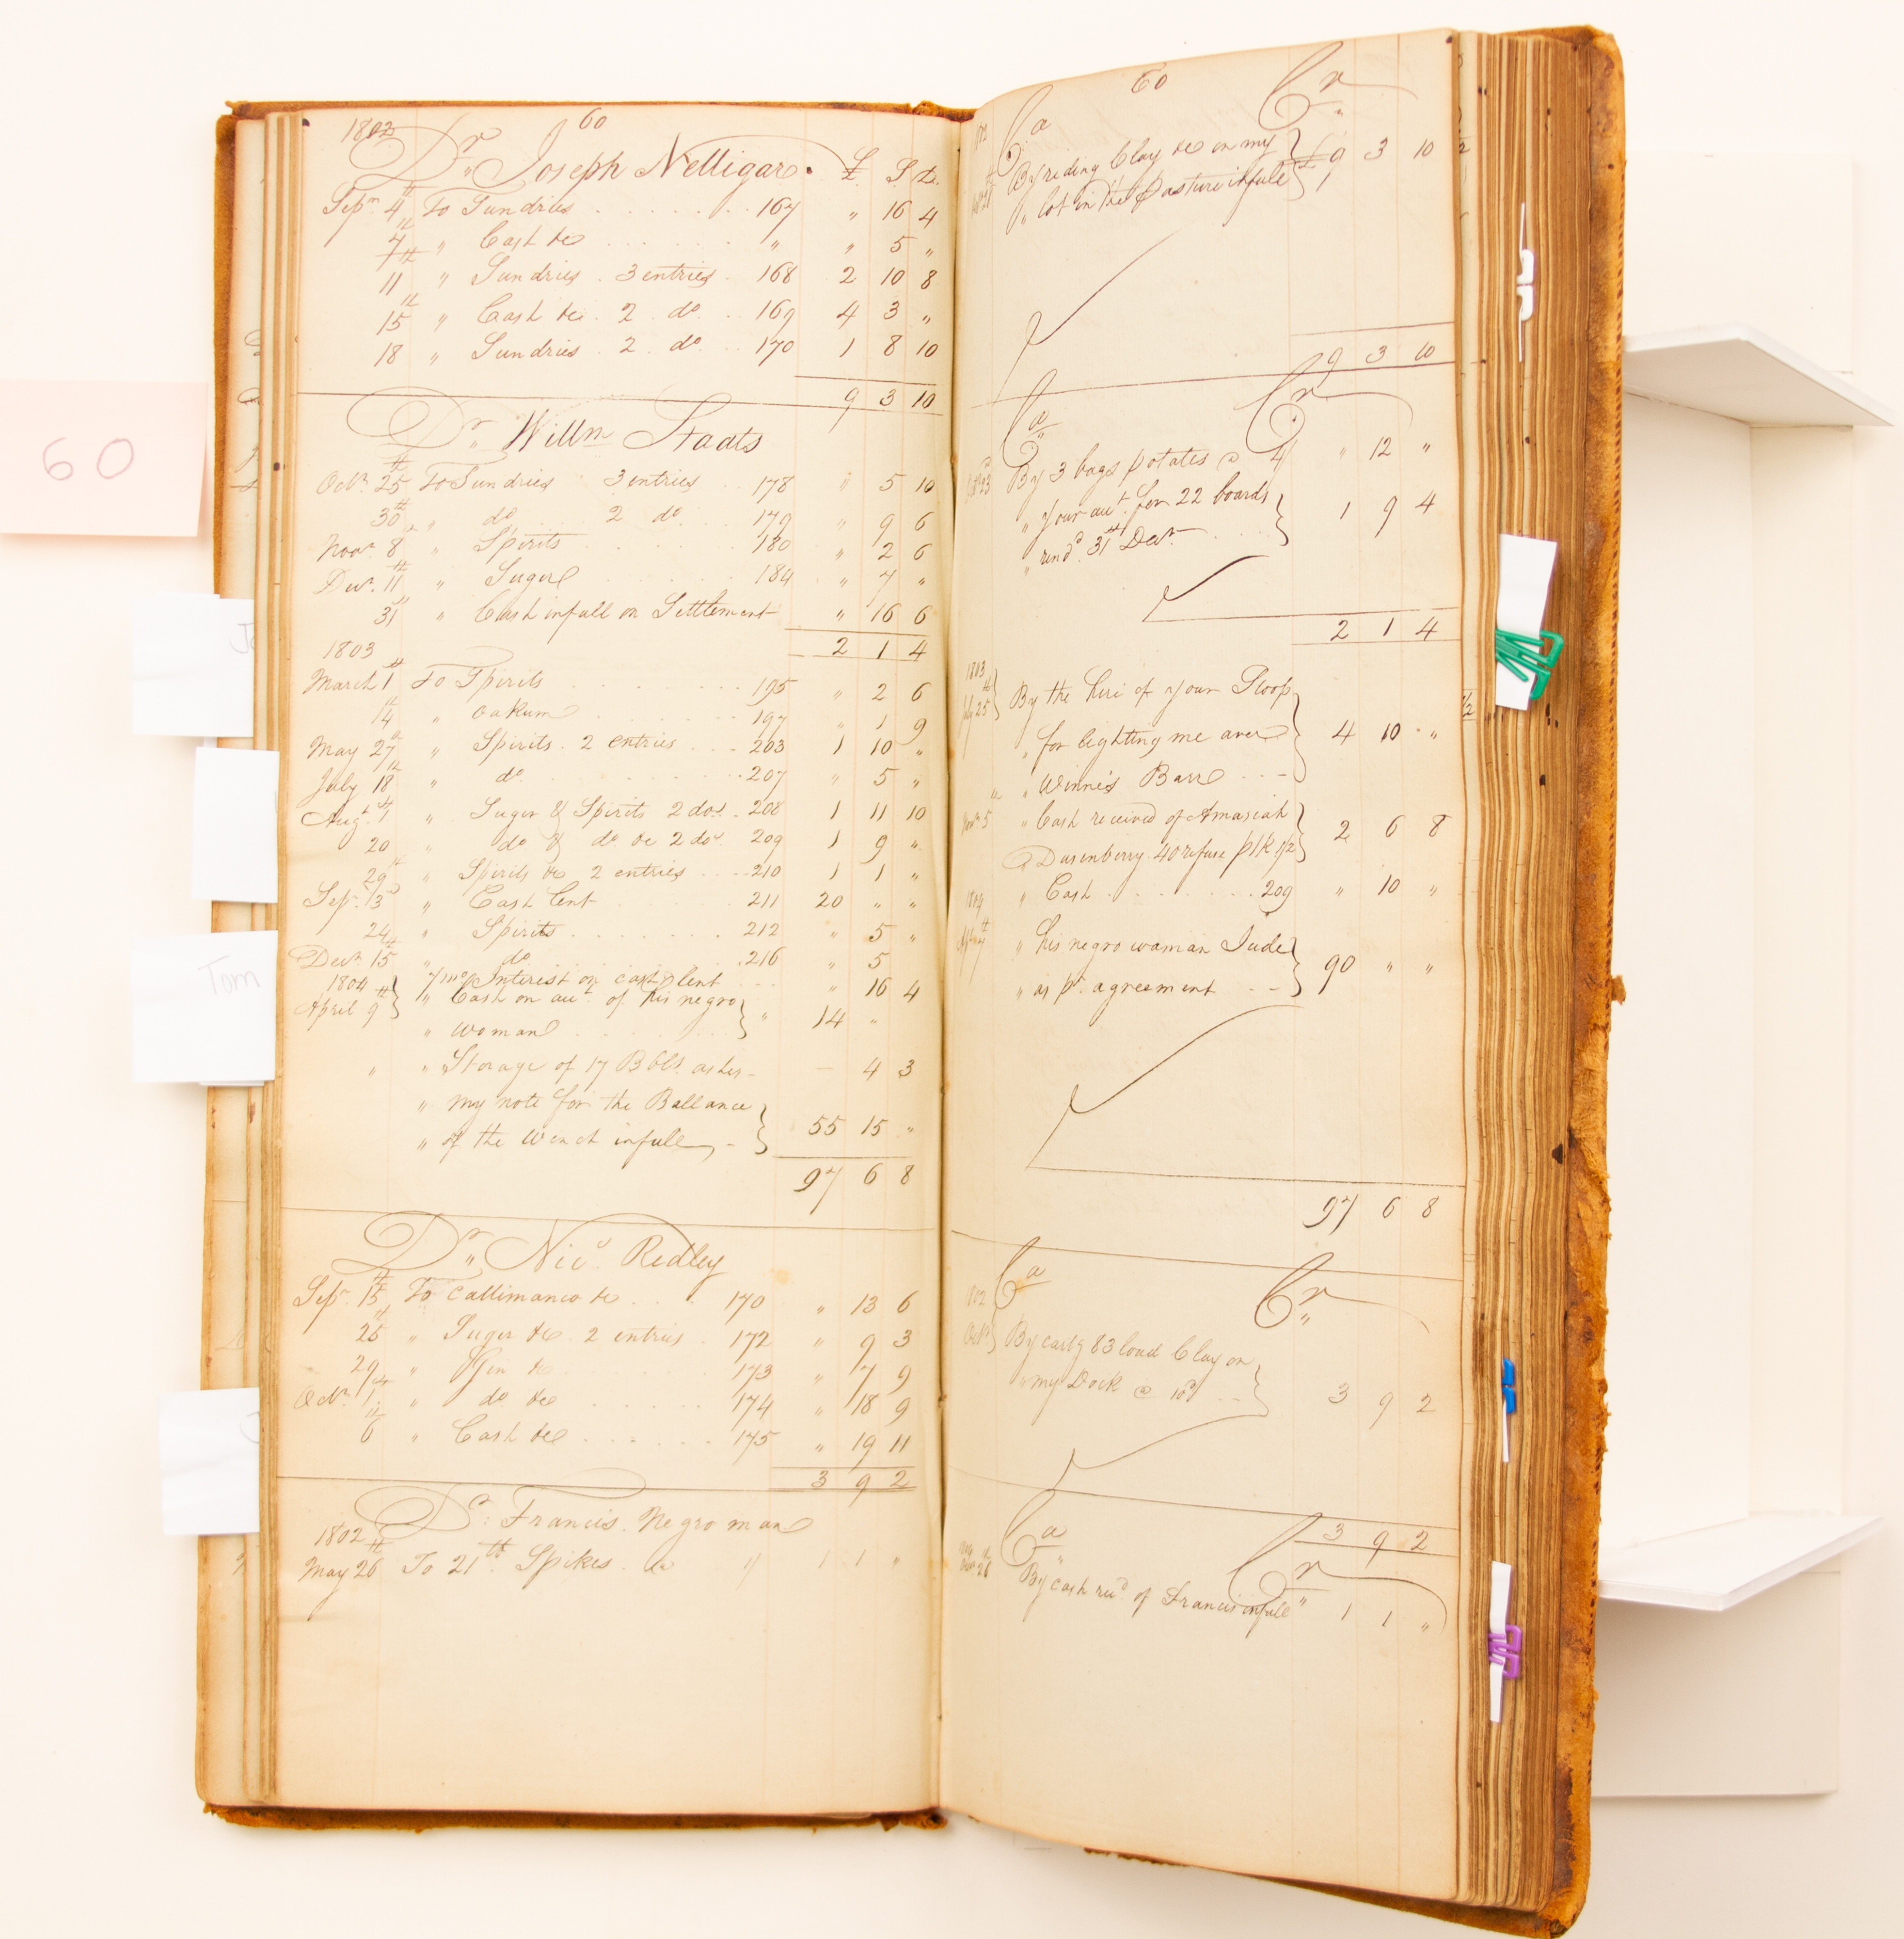 60
1802
60
Dr. Joseph Nelligar. £ S D.
Sepr. 4th To Sundries 167 " 16 4
7th " Cash &c " " 5 "
11th " Sundries . 3 entries . 168 2 10 8
15th " Cash &c . 2 do. 169 4 3 "
18th " Sundries . 2 . do. 170 1 8 10
9 3 10
Dr. Willm Staats
Octr. 25th To Sundries 3 entries 178 " 5 10
30th " do 2 do 179 " 9 6
Novr. 8th " Spirits 180 " 2 6
Decr. 11th " Sugar 184 " 7 "
31st " Cash infull on Settlement " 16 6
1803
2 1 4
March 1st To Spirits 195 " 2 6
14th " Oakum 197 " 1 9
May 27th " Spirits . 2 entries 203 1 10 "
July 18th " do. 207 " 5 "
Augt. 4th " Suger & Spirits 2 dos. 208 1 11 10
20 " do & do &c 2 dos. 209 1 9 "
29th " Spirits &c 2 entries 210 1 1 "
Sepr. 13th " Cash lent 211 20 " "
24th " Spirits 212 " 5 "
Decr. 15th " do 216 " 5
1804 " 7 mo. Interest on cash lent " 16 4
April 9th " Cash on acct. of his negro
" woman 14 "
" " Storage of 17 Bbls ashes 4 3
" my note for the Ballance
" of the Wench infull, 55 15 "
97 6 8
Dr. Nics. Redley
Sepr. 15th To Callimanco &c 170 " 13 6
25th " Suger &c. 2 entries 172 " 9 3
29th " Gin &c 173 " 7 9
Octr. 1st " do &c 174 " 18 9
6th " Cash &c 175 " 19 11
3 9 2
Dr. Francis. Negro man
1802
May 26th To 21 lb. Spikes. 1 1 "
60
Ca Cr
By riding Clay &c on my
" lot in the Pasture infull £9 3 10
9 3 10
Ca Cr
By 3 bags potates @ 4/ " 12 "
" Your acct. for 22 boards
" rendd. 31st Decr. 1 9 4
2 1 4
1803
July 25th By the hire of your Sloop
" for lighting me over
" Winne's Barr 4 10 "
Novr. 5 " Cash received of Amasiah
Dusenberry 40 refuse plk 1/2 2 6 8
" Cash 209 " 10 "
1804
" his negro woman Jude
" as pr. agreement 90 " "
97 6 8
Ca Cr
1802
Octr. By cartg 83 load Clay on
" my Dock @ 10d 3 9 2
3 9 2
Ca Cr
By cash recd. of Francis infull 1 1 "
Tom